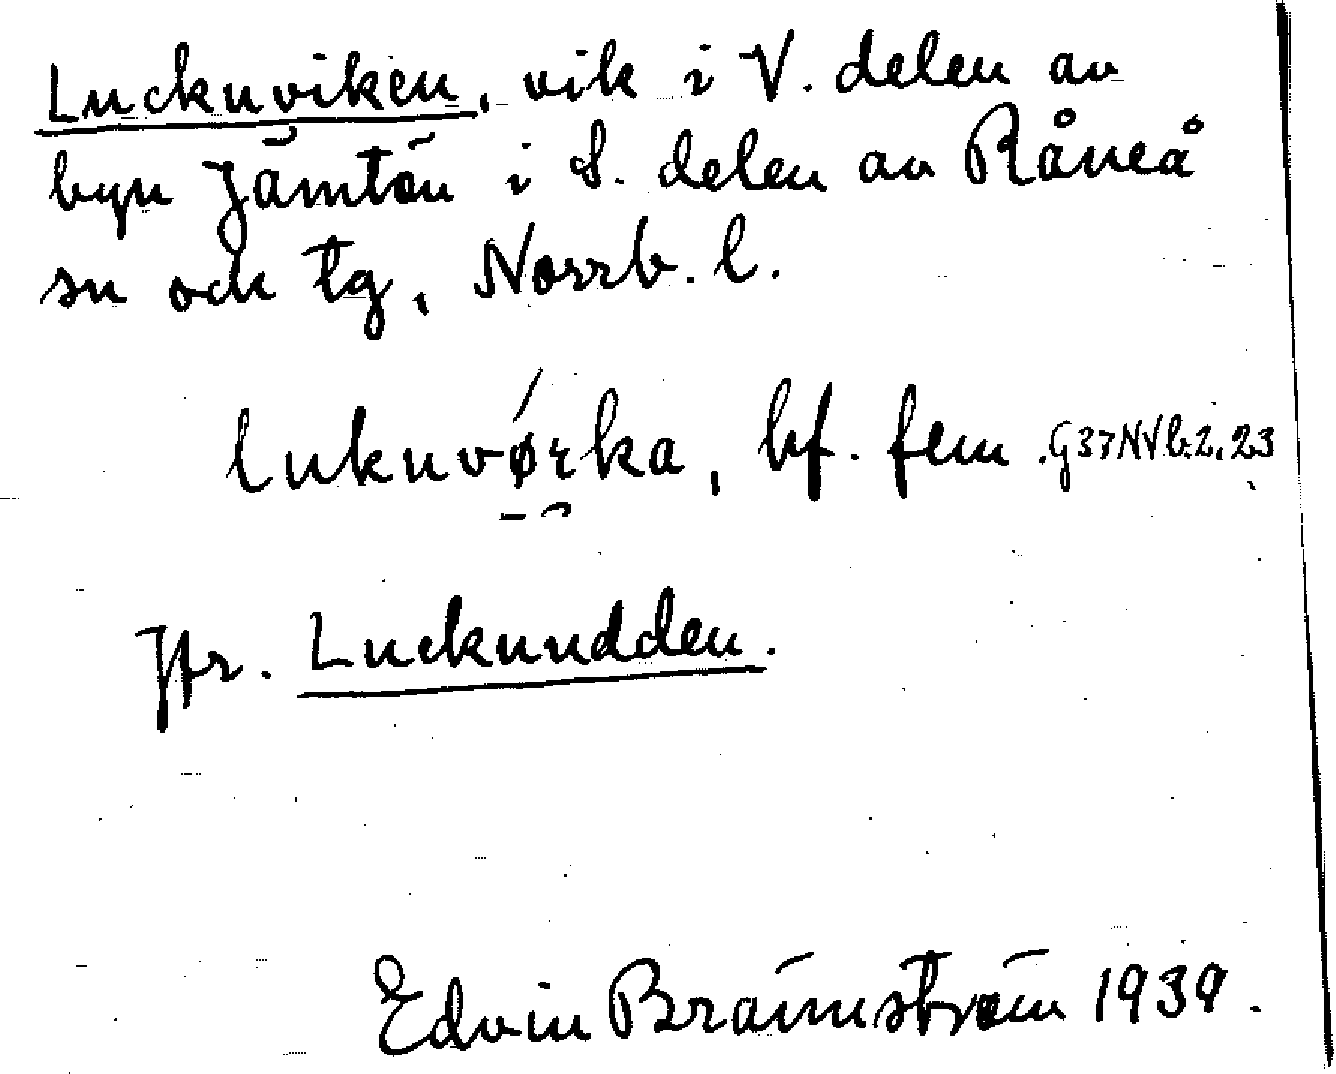 Lucknviken, vik i V. delen av
byn Jämtön i S. delen av Råneå
sn och tg, Norrb. l.
luknvǿrka, bf. fem. G37NVb2,23
Jfr. Lucknudden.
Edvin Brännström 1939.